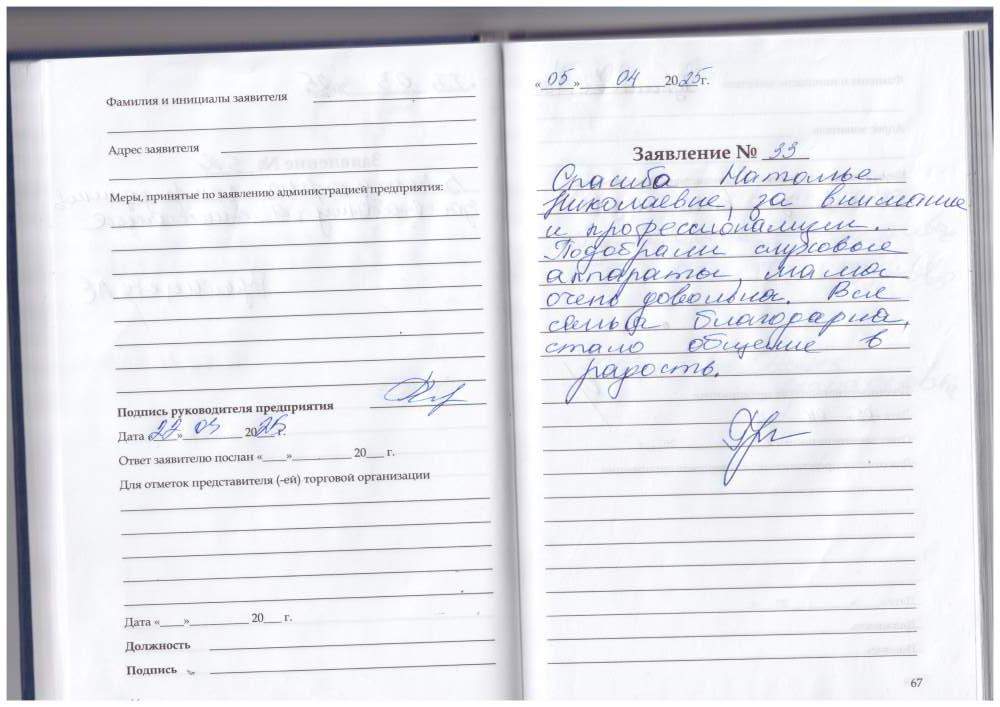 Фамилия и инициалы заявителя
Адрес заявителя
Меры, принятые по заявлению администрацией предприятия:
Подпись руководителя предприятия
Дата «22» 03 2025 г.
Ответ заявителю послан «____»__________ 20___ г.
Для отметок представителя (-ей) торговой организации
Дата «____»__________ 20___ г.
Должность
Подпись
«05» 04 2025г.
Заявление № 33
Спасибо Наталье
Николаевне за внимание
и профессионализм.
Подобрали слуховые
аппараты, мама
очень довольна. Вся
семья благодарна,
стало общение в
радость.
67